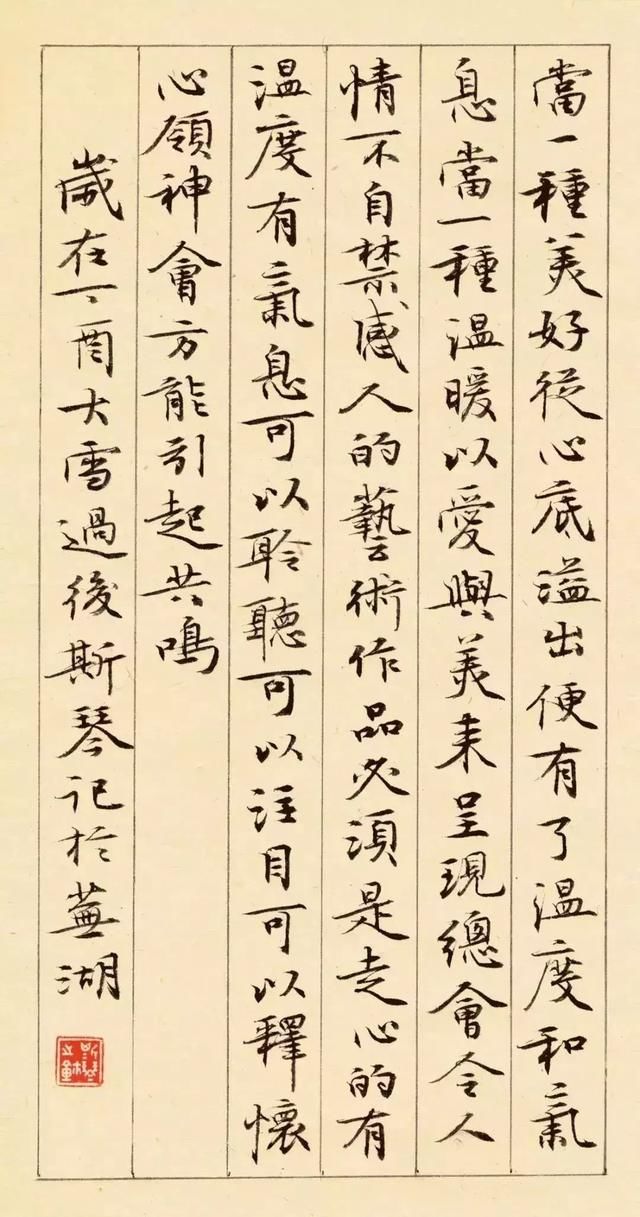 當一種美好從心底溢出便有了溫度和氣
息當一種溫暖以愛與美來呈現總會令人
情不自禁感人的藝術作品必須是走心的有
溫度有氣息可以聆聽可以注目可以釋懷
心領神會方能引起共鳴
歲在丁酉大雪過後斯琴記於蕪湖